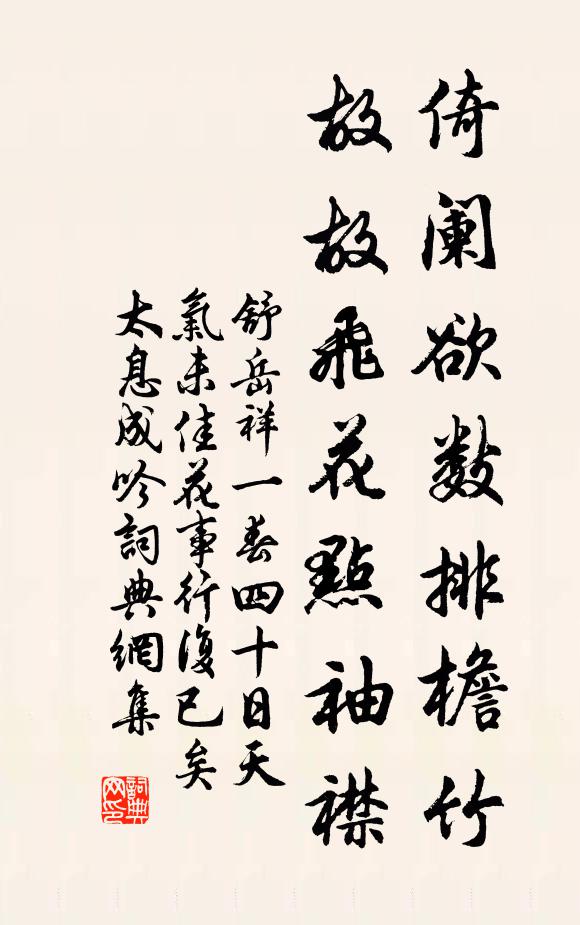 倚阑欲数排檐竹
故故飛花點袖襟
舒岳祥一春四十日天
氣未佳花事行復已矣
太息成吟詞典網集
詞典网印